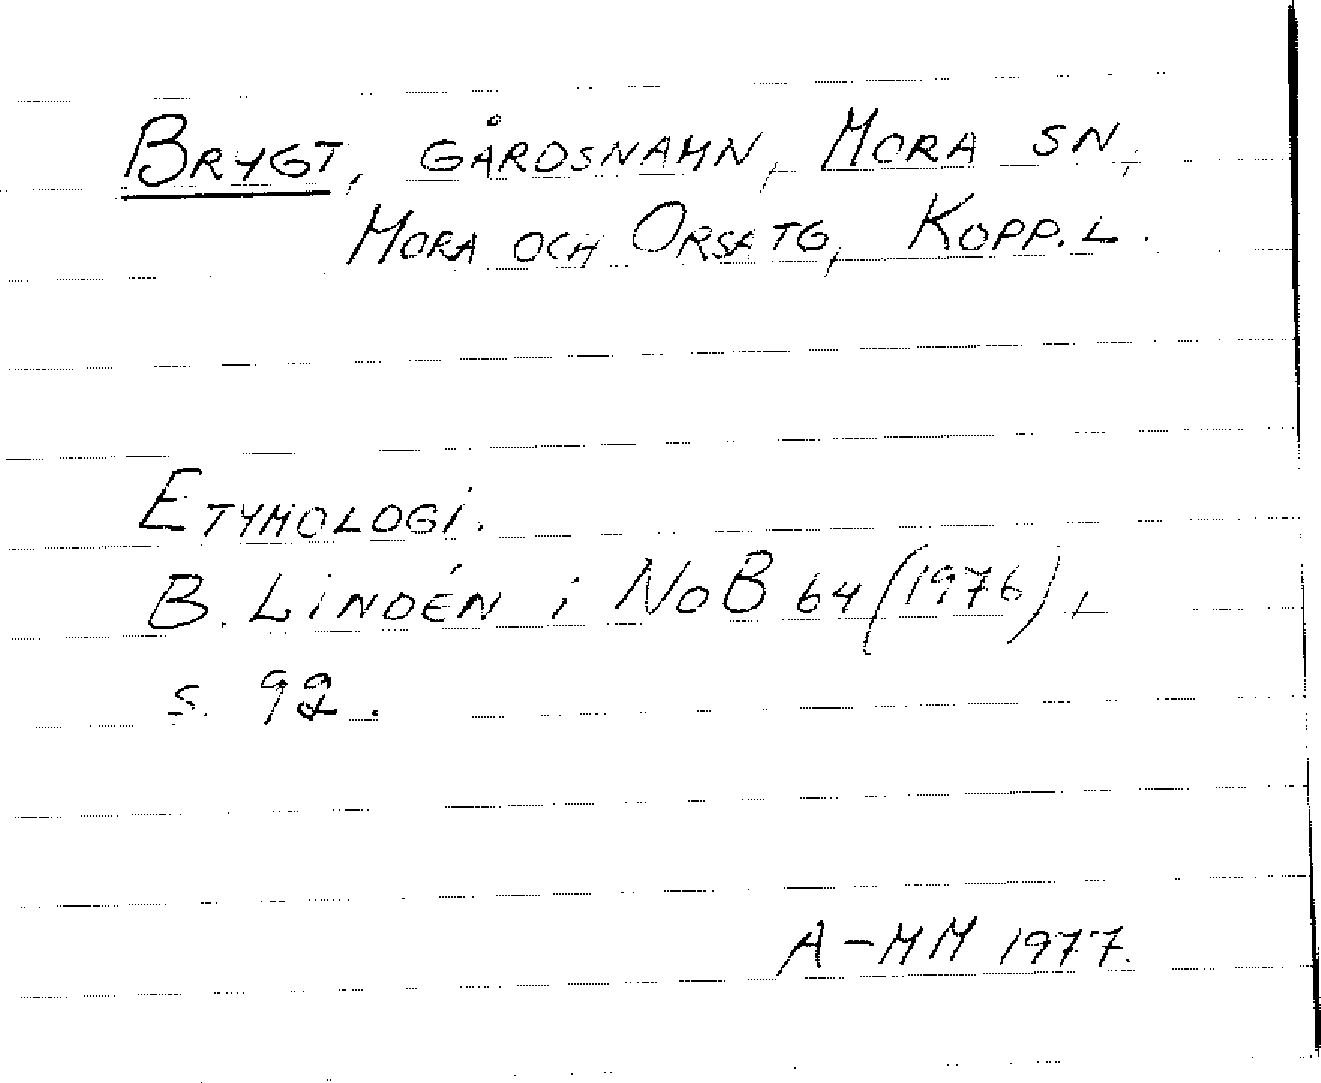 BRYGT, GÅRDSNAMN, MORA SN,
MORA OCH ORSA TG, KOPP. L.
ETYMOLOGI.
B. LINDÉN i NoB 64 (1976),
s. 92.
A-MM 1977.